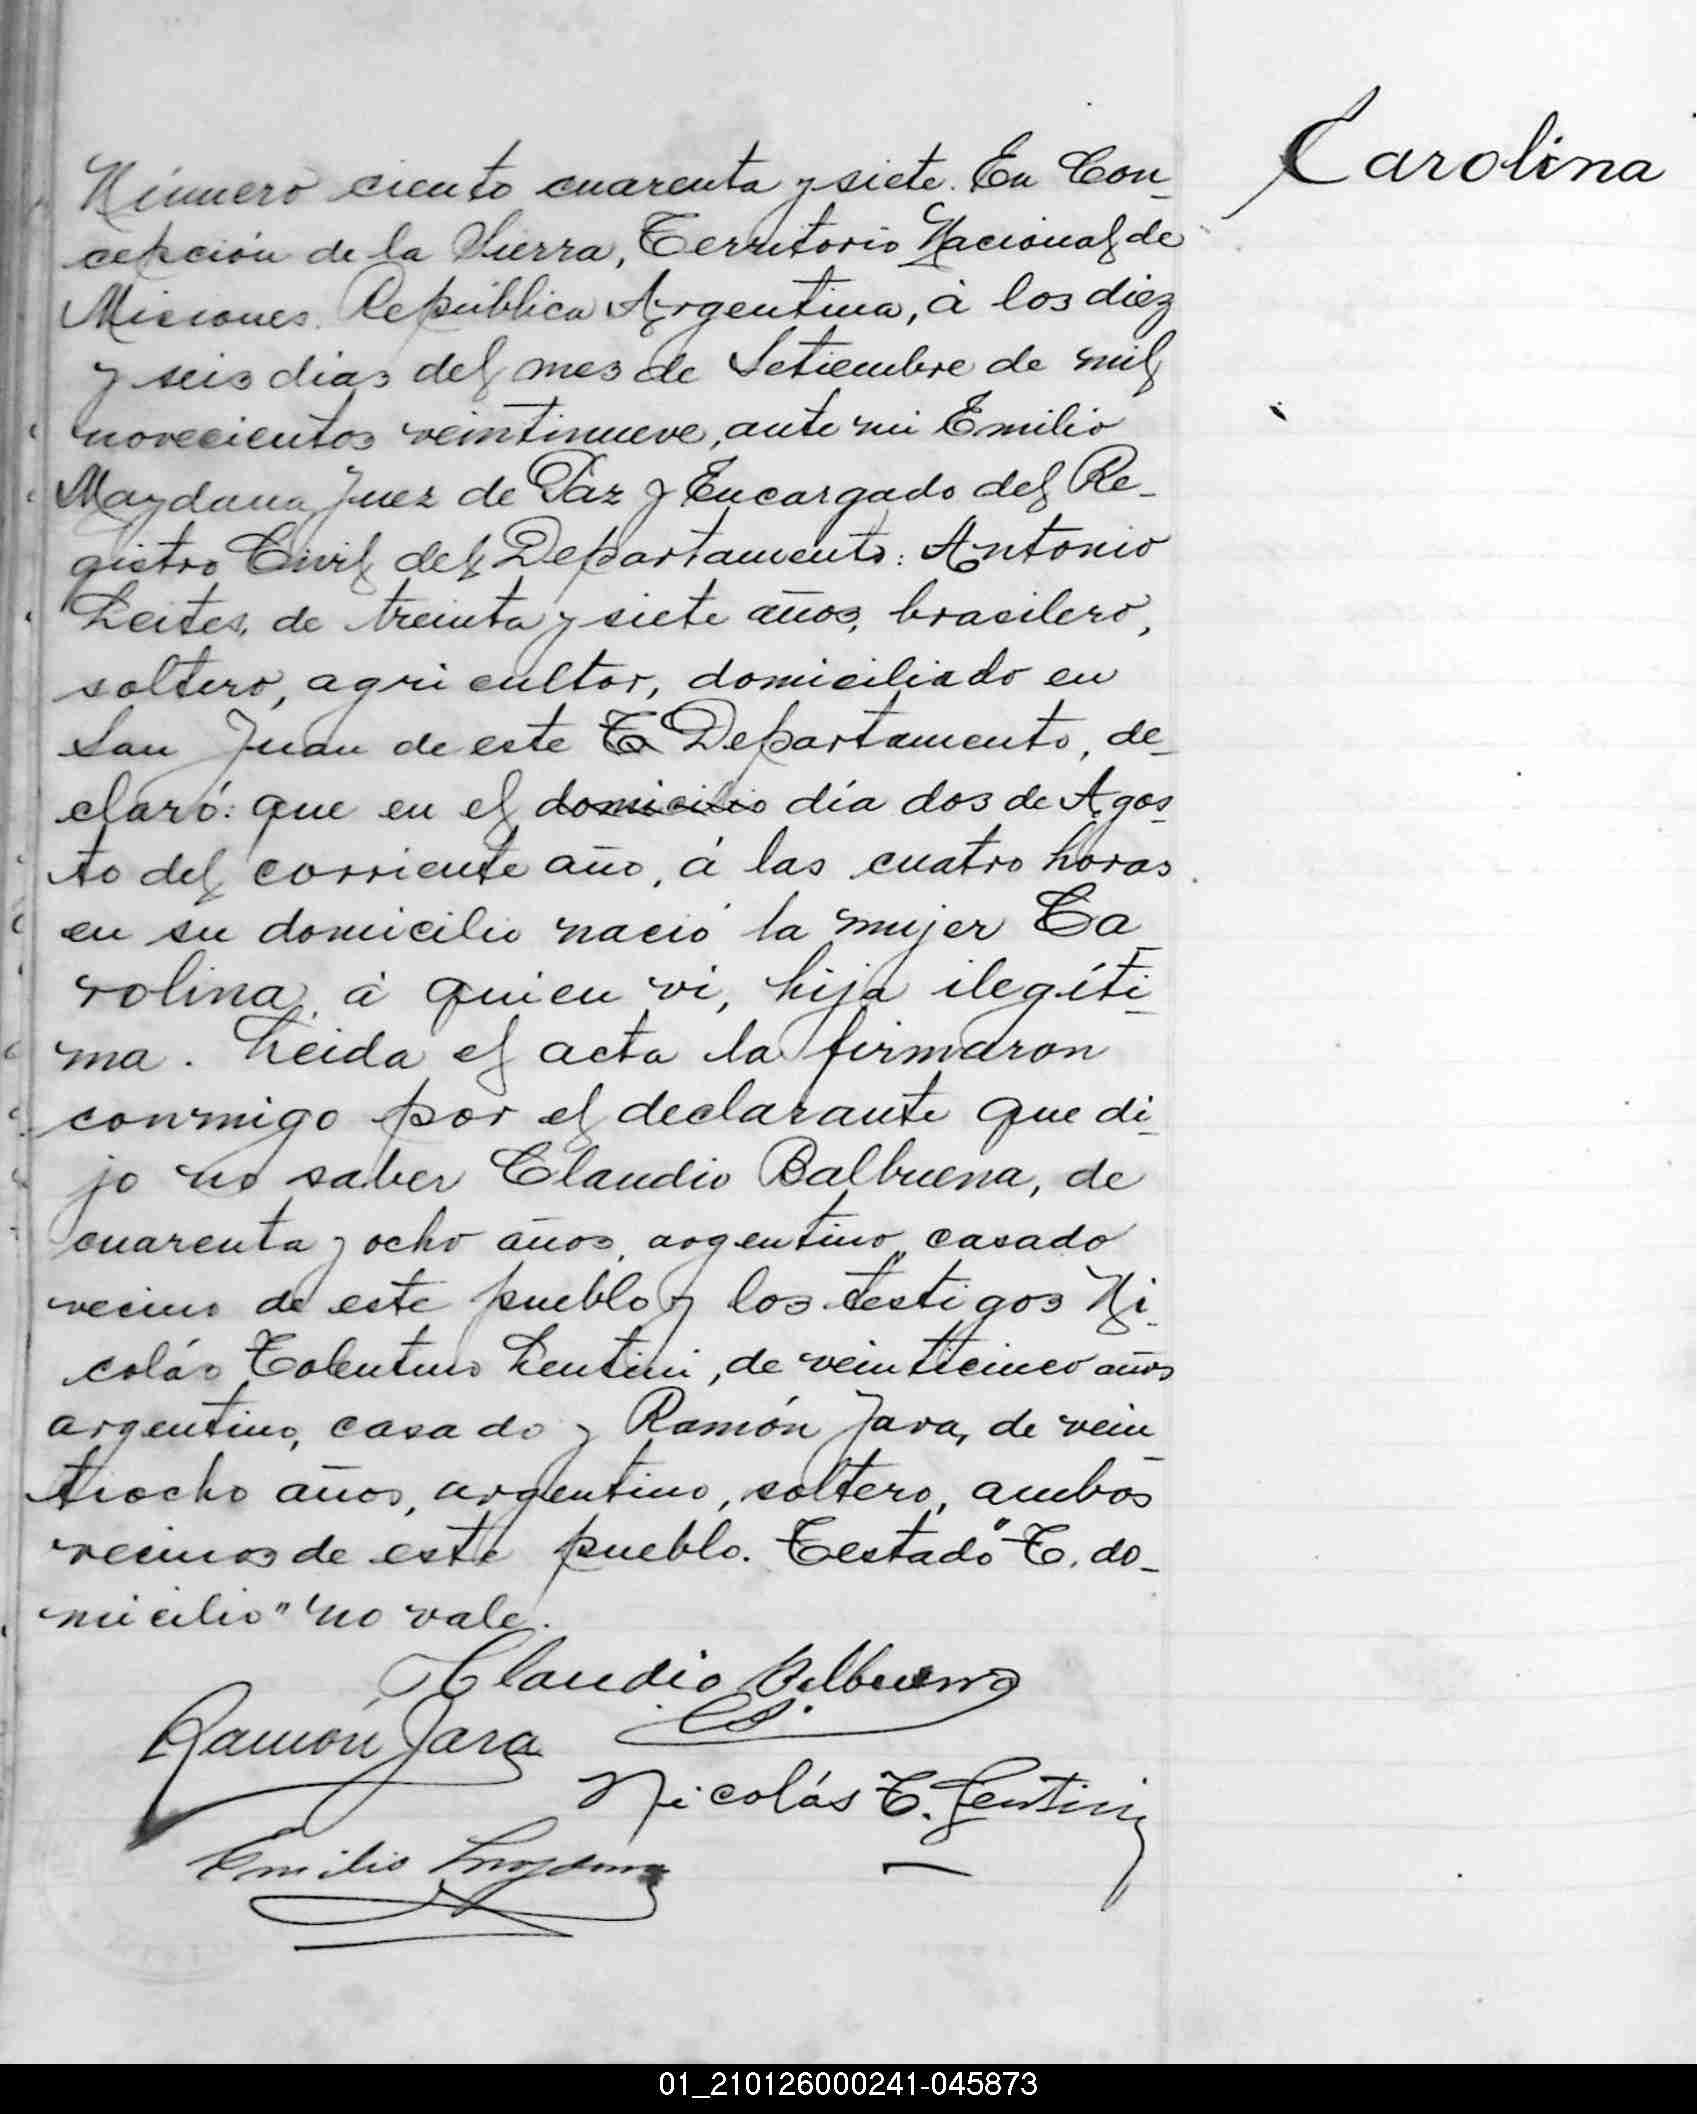 Carolina
Número ciento cuarenta y siete. En Con-
cepción de la Sierra, Territorio Nacional de
Misiones. República Argentina, á los diez
y seis dias del mes de Setiembre de mil
novecientos veintinueve, ante mi Emilio
Maydana Juez de Paz y Encargado del Re-
gistro Civil del Departamento: Antonio
Leites, de treinta y siete años, brasilero,
soltero, agricultor, domiciliado en
San Juan de este T Departamento, de-
claró: que en el domicilio día dos de Agos-
to del corriente año, á las cuatro horas
en su domicilio nació la mujer Ca
rolina, á quien vi, hija ilegíti-
ma. Leida el acta la firmaron
conmigo por el declarante que di-
jo no saber Claudio Balbuena, de
cuarenta y ocho años, argentino, casado
vecino de este pueblo y los testigos Ni-
colás Tolentino Lentini, de veinticinco años
argentino, casado y Ramón Jara, de vein
tiocho años, argentino, soltero, ambos
vecinos de este pueblo. Testado "T. do-
micilio" no vale.
Claudio Balbuena
Ramón Jara
Nicolás T. Lentini
Emilio Maydana
01_210126000241-045873